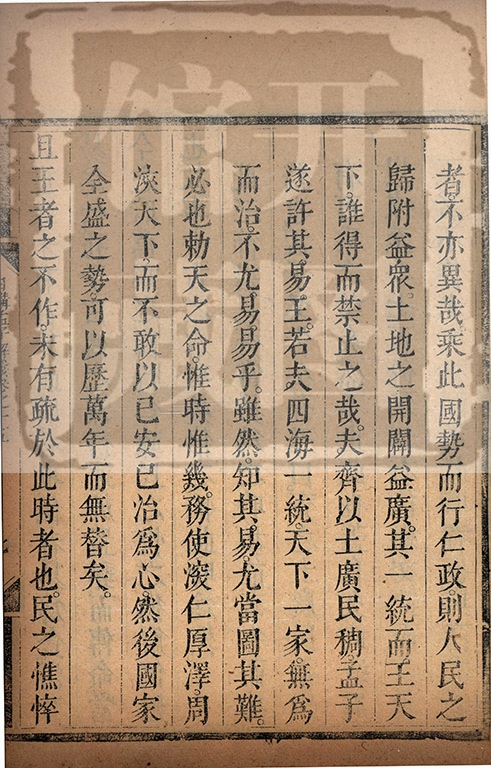 者不亦異哉。乘此國勢而行仁政。則人民之
歸附益衆。土地之開闢益廣。其一統而王天
下。誰得而禁止之哉。夫齊以土廣民稠。孟子
遂許其易王。若夫四海一統。天下一家。無爲
而治。不尤易易乎。雖然。知其易。尤當圖其難。
必也勅天之命。惟時惟幾。務使深仁厚澤。周
浹天下。而不敢以已安已治爲心。然後國家
全盛之勢。可以歷萬年而無替矣。
且王者之不作。未有疏於此時者也。民之憔悴